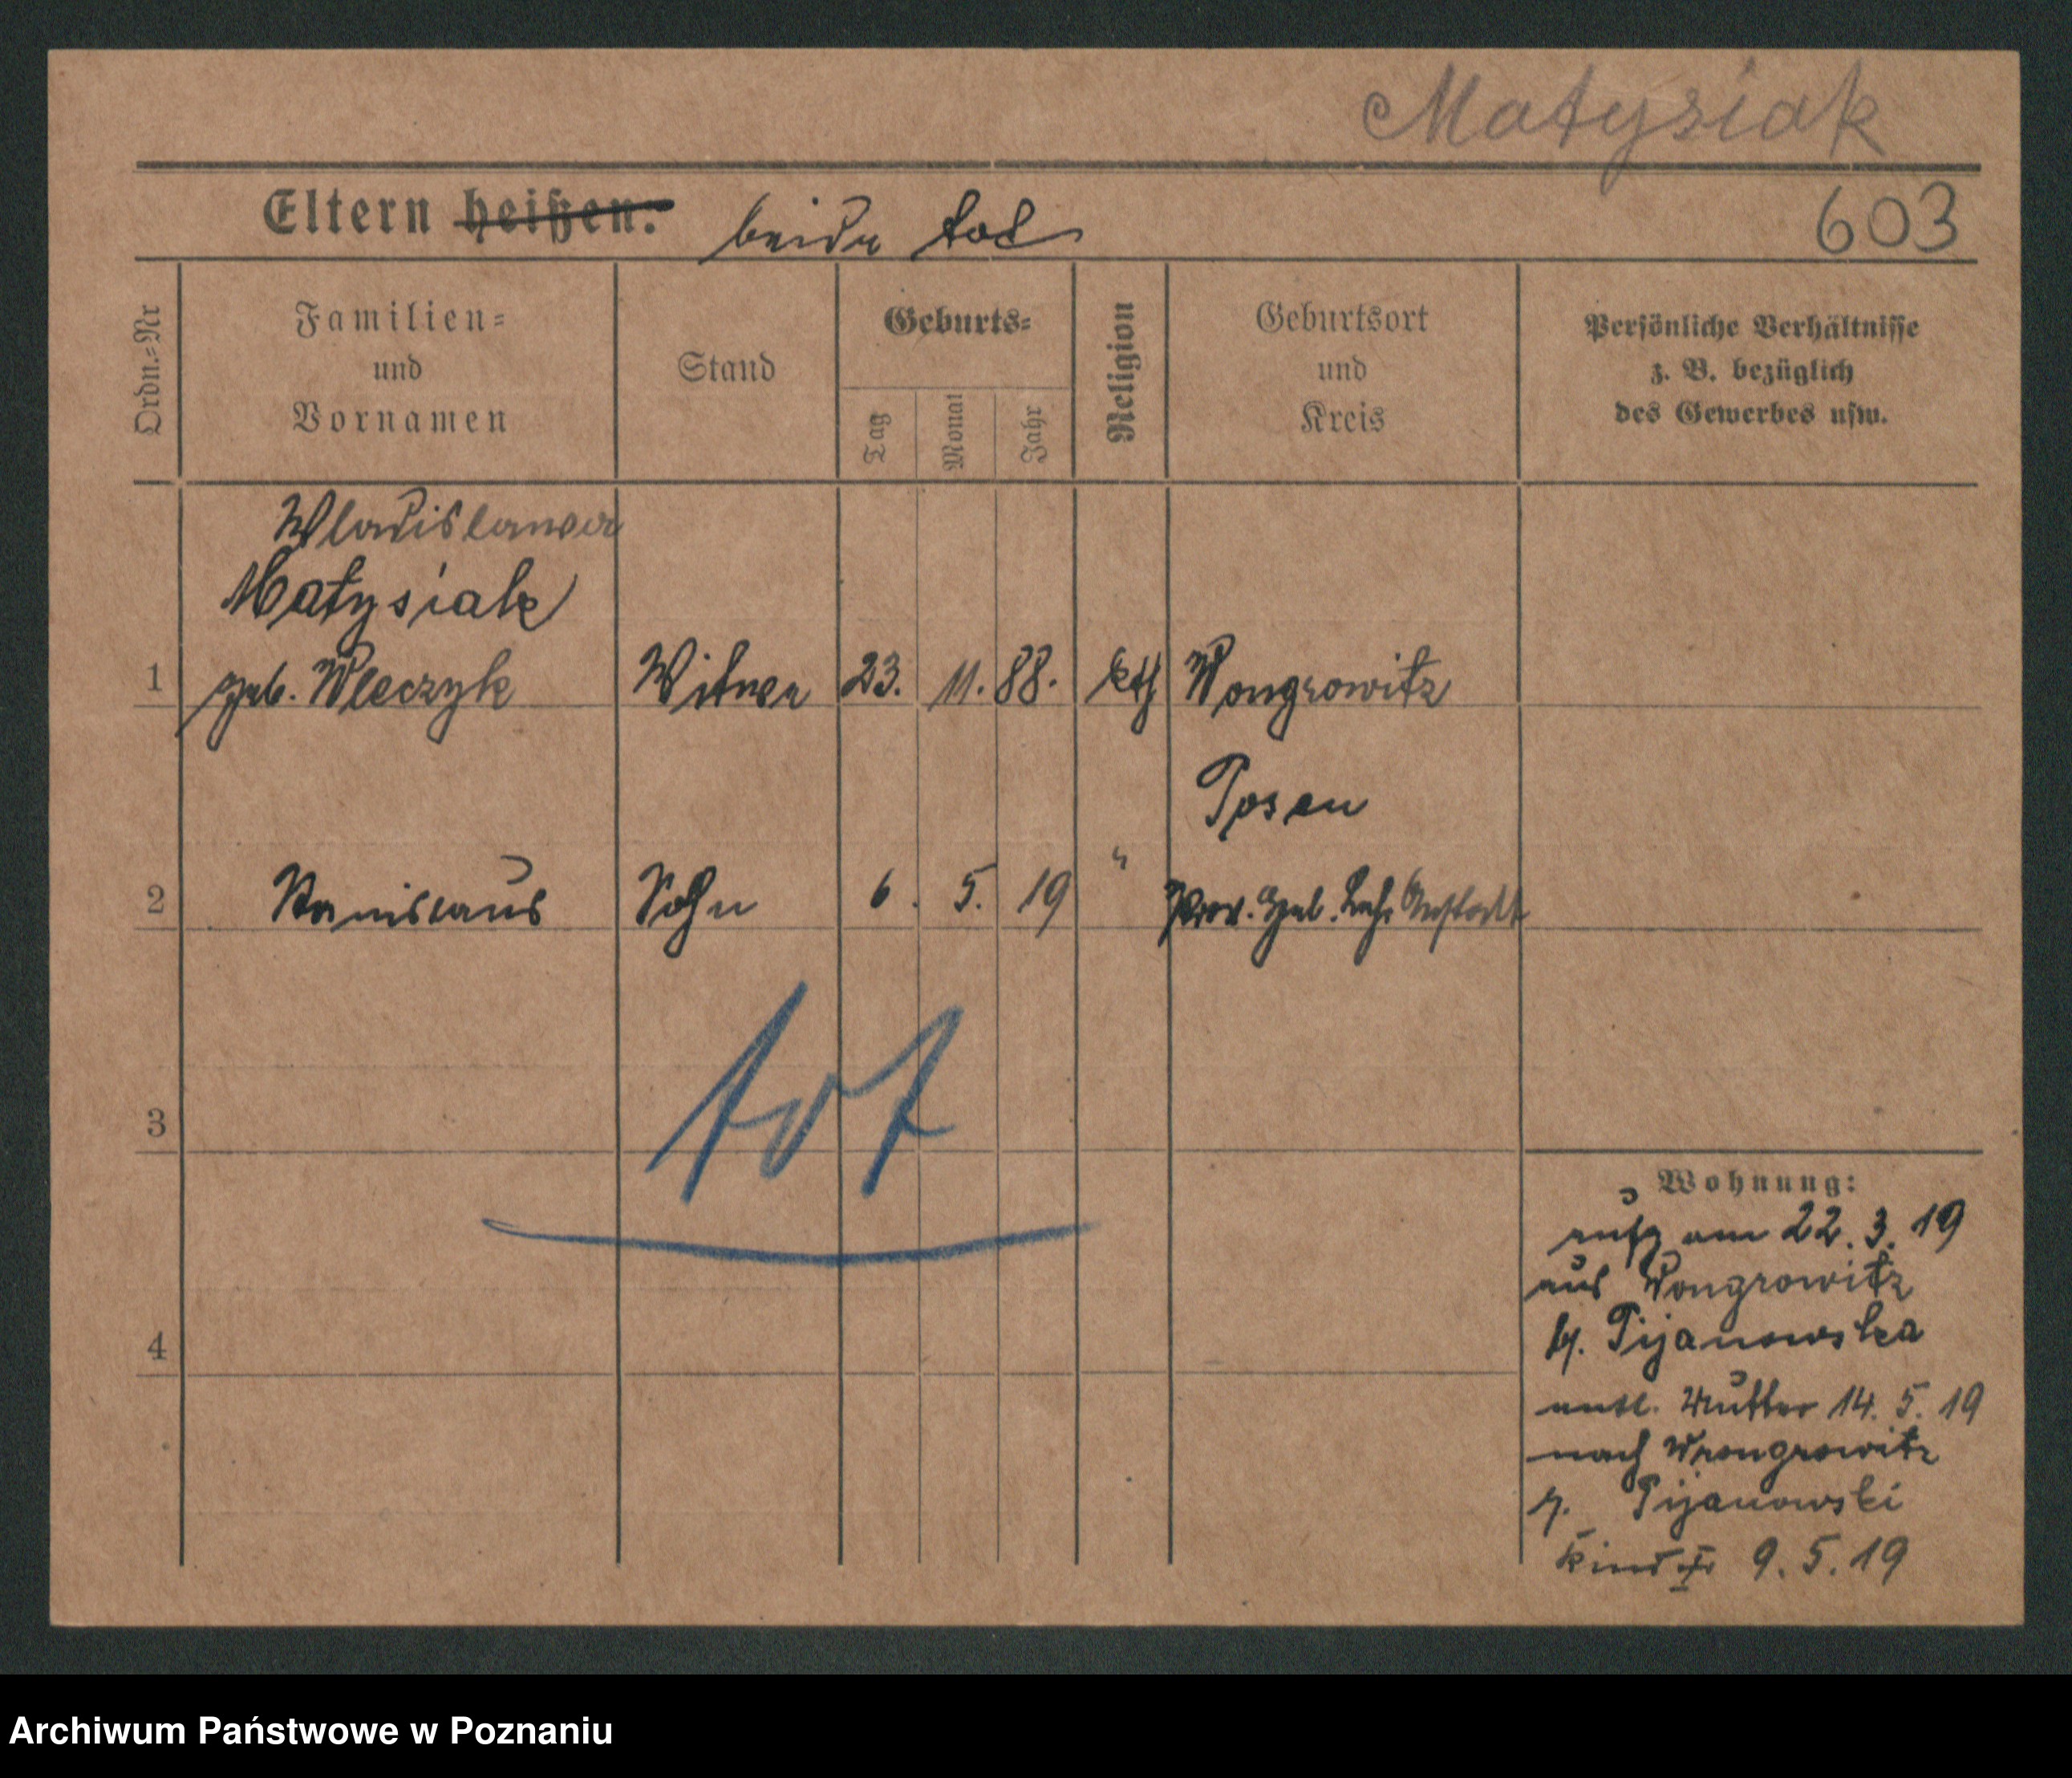 Matysiak
Eltern heißen: beide tod
603
Ordn.-Nr
Familien-
und
Vornamen
Stand
Geburts-
Tag
Monat
Jahr
Religion
Geburtsort
und
Kreis
Persönliche Verhältnisse
z. B. bezüglich
des Gewerbes usw.
Wladislawa
Matysiak
1 geb. Wleczyk Witwe 23. 11. 88. kth Wongrowitz
Posen
2 Stanislaus Sohn 6. 5. 19 " Prov. Heb. Lehr Anstalt
tot
3
4
Wohnung:
aufg am 22. 3. 19
aus Wongrowitz
b/. Pijanowska
entl. Mutter 14. 5. 19
nach Wrongrowitz
Pijanowski
Kind 9. 5. 19
Archiwum Państwowe w Poznaniu